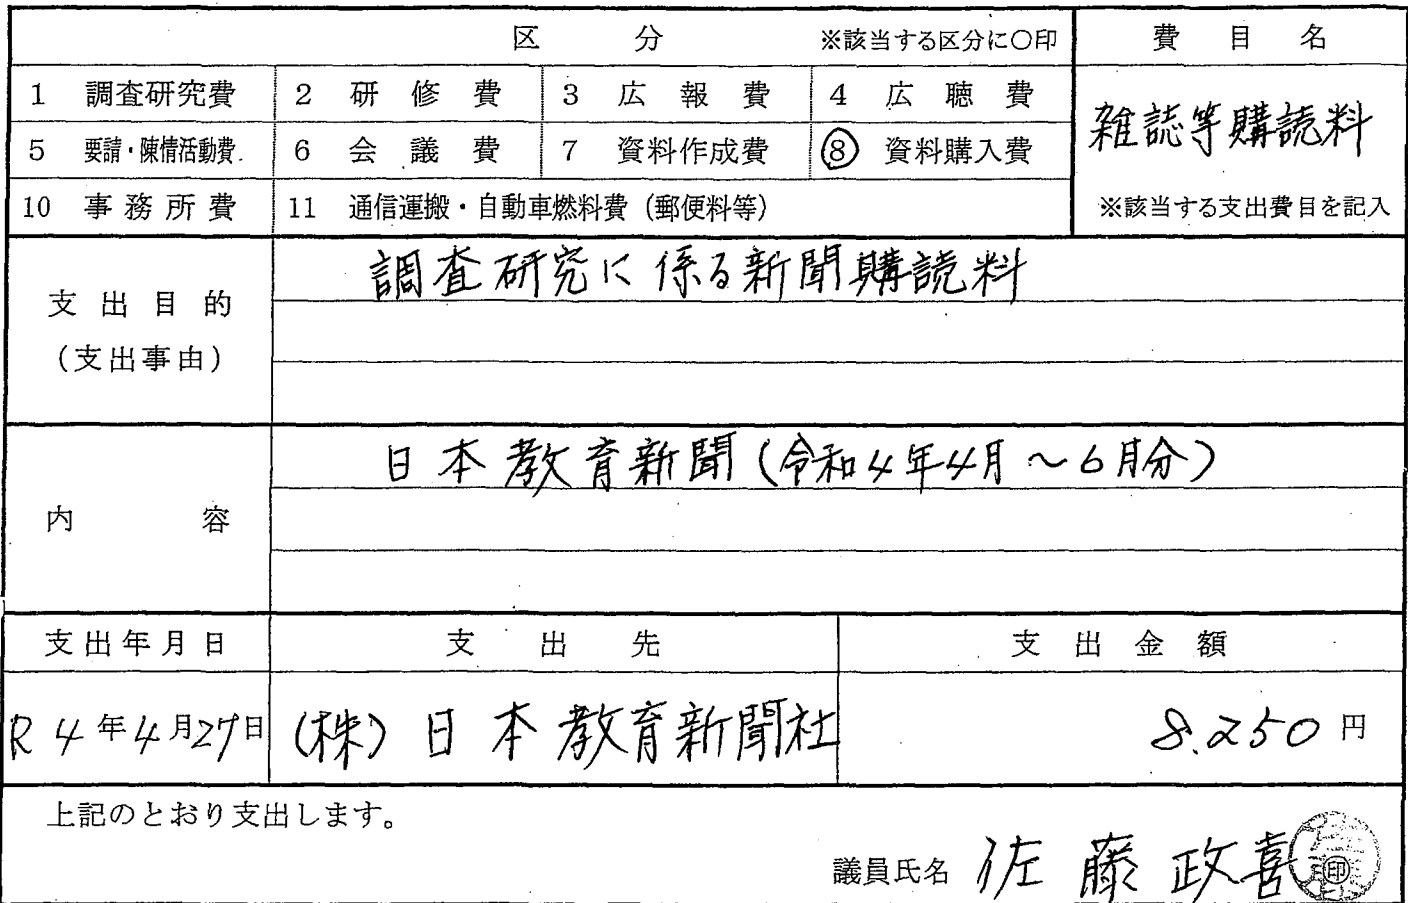 区　分　※該当する区分に○印　費目名
1 調査研究費　2 研修費　3 広報費　4 広聴費　雑誌等購読料
5 要請・陳情活動費　6 会議費　7 資料作成費　⑧ 資料購入費
10 事務所費　11 通信運搬・自動車燃料費（郵便料等）　※該当する支出費目を記入
支出目的
（支出事由）
調査研究に係る新聞購読料
内容
日本教育新聞（令和4年4月～6月分）
支出年月日　支出先　支出金額
R4年4月27日　(株) 日本教育新聞社　8.250円
上記のとおり支出します。
議員氏名　佐藤政喜　印